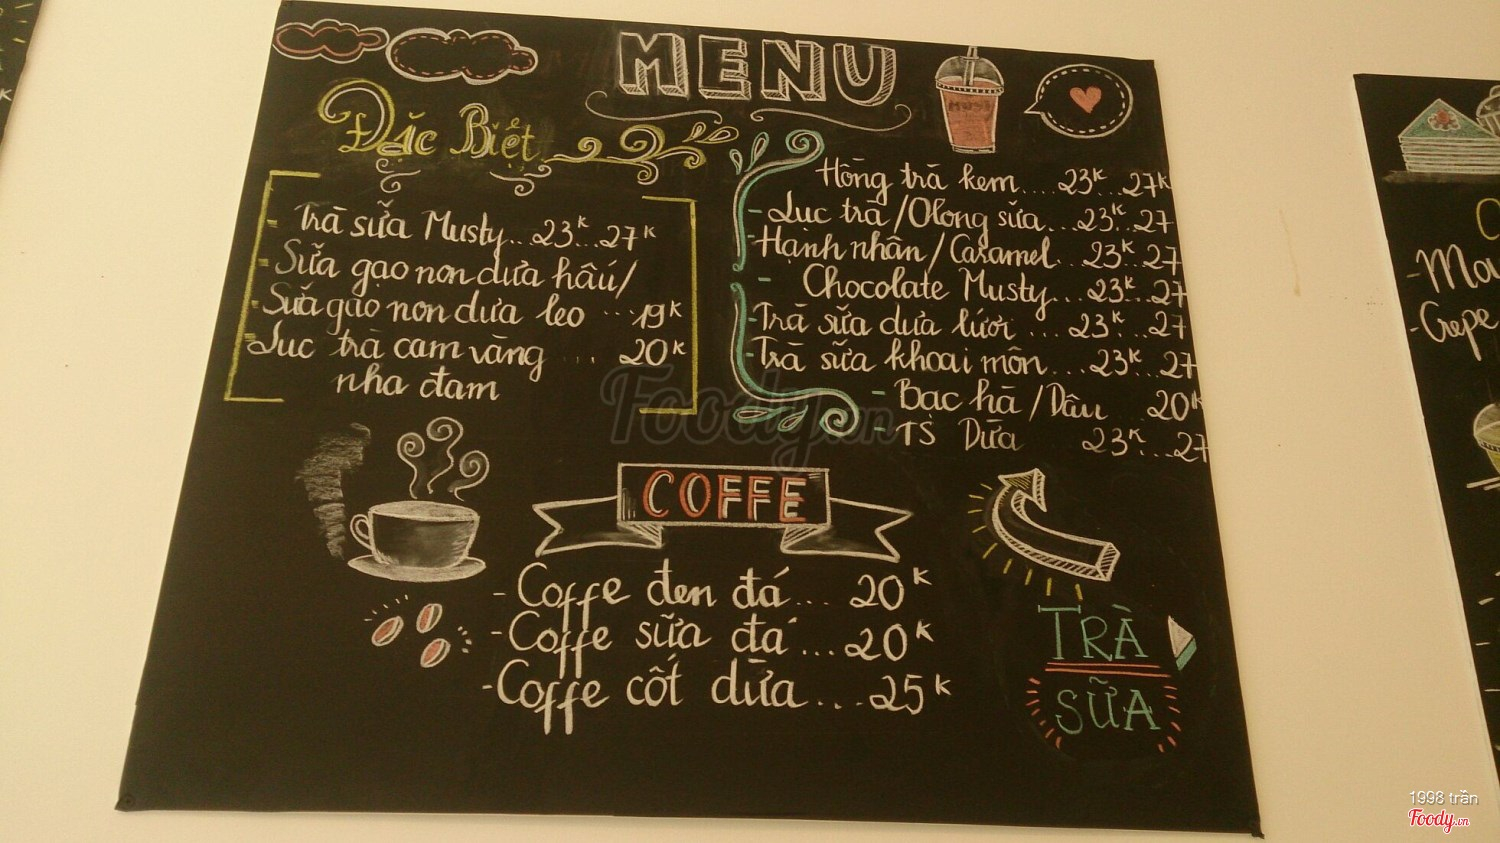 MENU
Đặc Biệt
- Trà sữa Musty..23K..27K
- Sữa gạo non dưa hấu/
- Sữa gạo non dưa leo ...19K
- Lục trà cam vàng .... 20K
nha đam
Hồng trà kem....23K..27K
- Lục trà/Olong sữa...23K..27
- Hạnh nhân/Caramel..23K..27
- Chocolate Musty...23K..27
- Trà sữa dưa lưới ...23K..27
- Trà sữa khoai môn...23K..27
- Bạc hà/Dâu 20K
- TS Dừa 23K...27
COFFE
- Coffe đen đá.... 20K
- Coffe sữa đá ...20K
- Coffe cốt dừa....25K
TRÀ
SỮA
- Crepe
Foody.vn
1998 trần
Foody.vn